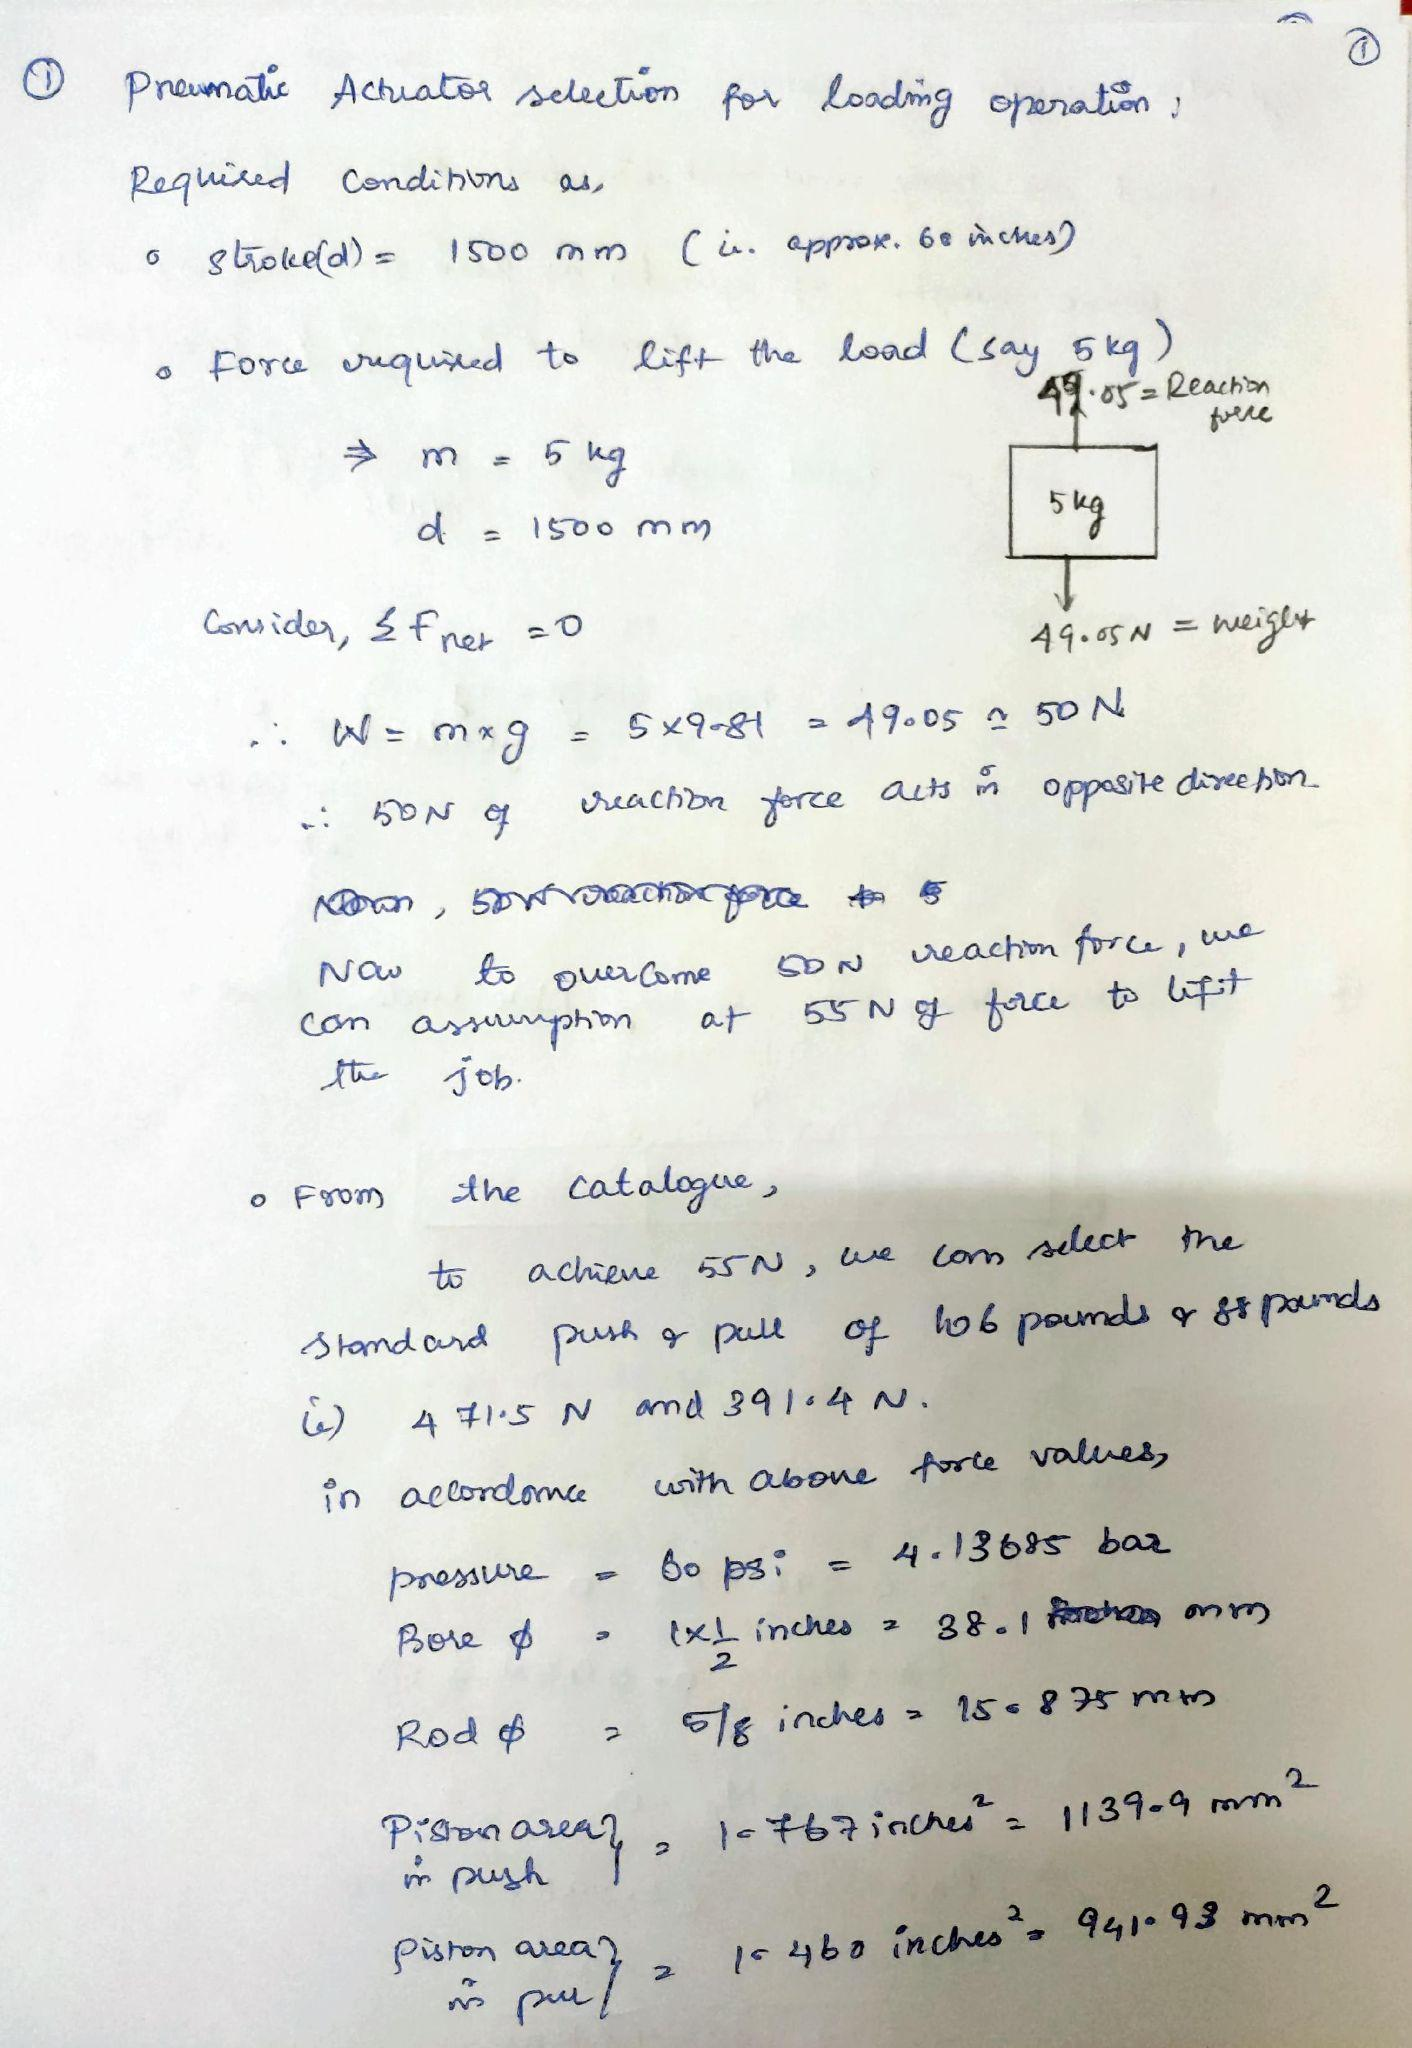 ①
① Pneumatic Actuator selection for loading operation ;
Required Conditions as,
o stroke(d) = 1500 mm ( ie. approx. 60 inches)
o Force required to lift the load (say 5 kg )
49.05 = Reaction
force
⇒ m = 5 kg
5 kg
d = 1500 mm
Consider, Σ F net = 0
49.05 N = weight
∴ W = m×g = 5×9.81 = 49.05 ≃ 50 N
∴ 50N of reaction force acts in opposite direction
Now to overcome 50 N reaction force, we
can assumption at 55 N of force to lifit
the job.
o From the catalogue,
to achieve 55N, we can select the
standard push & pull of 106 pounds & 88 pounds
ie) 471.5 N and 391.4 N.
in accordance with above force values,
pressure = 60 psi = 4.13685 bar
Bore ϕ = 1×1/2 inches = 38.1 mm
Rod ϕ = 5/8 inches = 15.875 mm
Piston area } = 1.767 inches² = 1139.9 mm²
in push
Piston area } = 1.460 inches² = 941.93 mm²
in pull